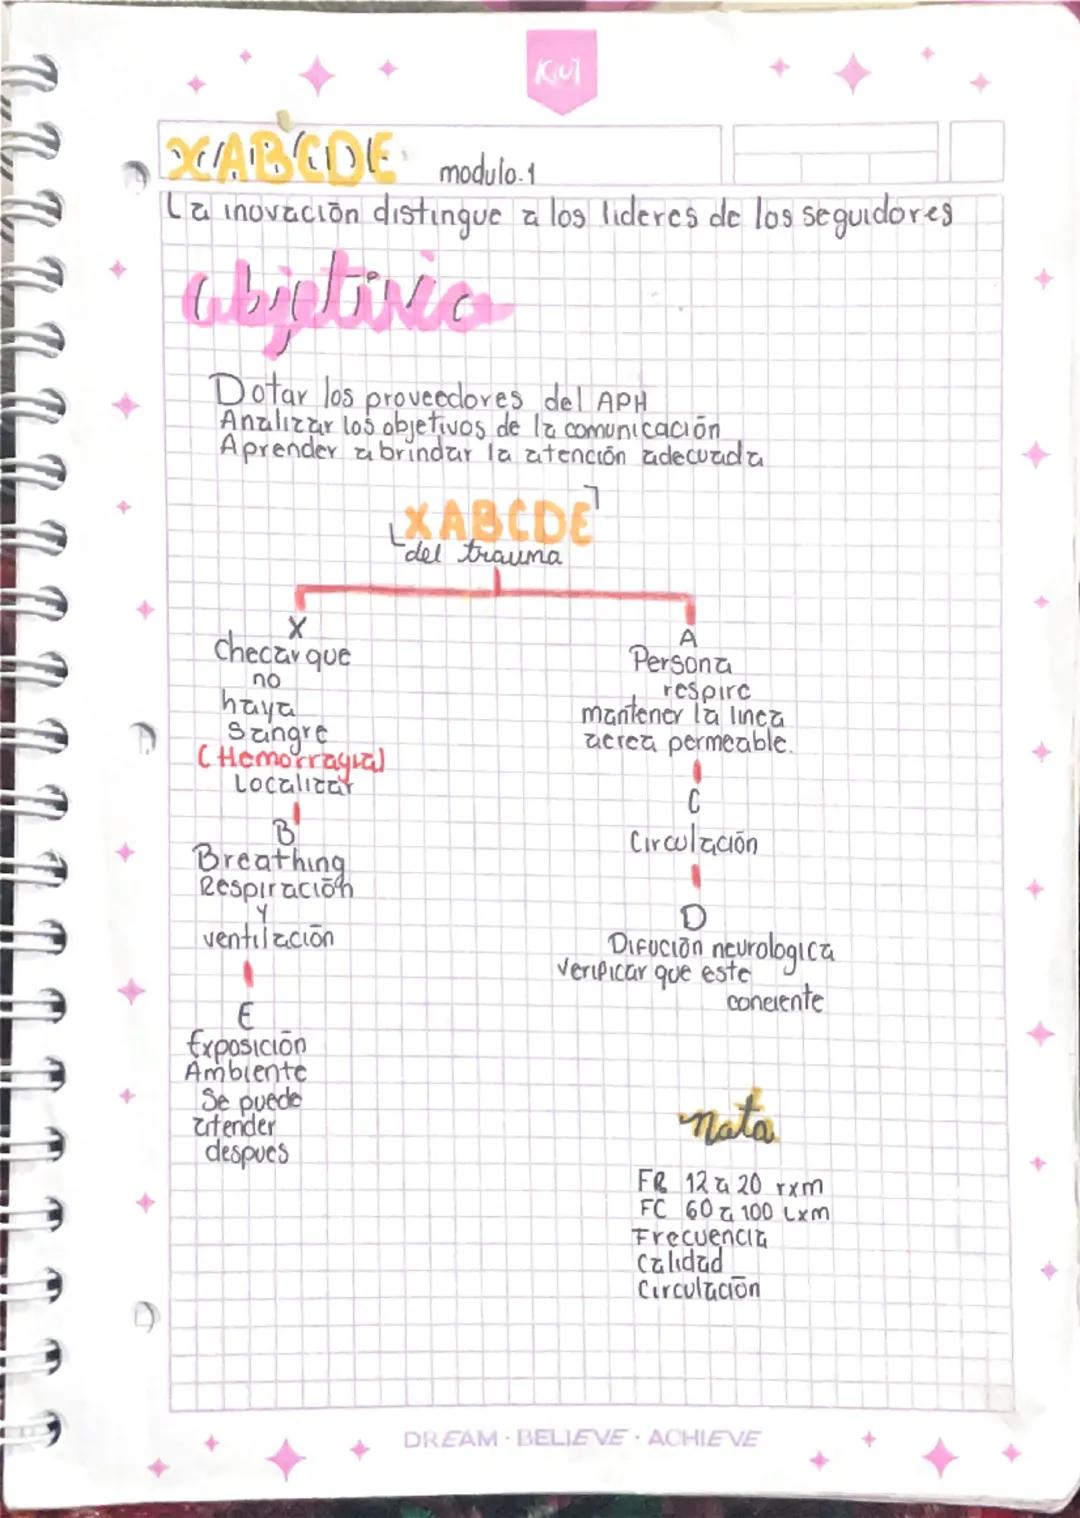 KIUT
XABCDE modulo.1
La inovación distingue a los lideres de los seguidores
Objetivo
Dotar los proveedores del APH
Analizar los objetivos de la comunicación
Aprender a brindar la atención adecuada
XABCDE
del trauma
X
Checar que
no
haya
sangre
(Hemorragia)
Localizar
B
Breathing
Respiración
Y
ventilación
E
Exposición
Ambiente
Se puede
atender
despues
A
Persona
respire
mantener la linea
aerea permeable.
C
Circulación
D
Difución neurologica
Verificar que este
conciente
nota
FR 12 a 20 rxm
FC 60 a 100 Lxm
Frecuencia
Calidad
Circulación
DREAM · BELIEVE · ACHIEVE